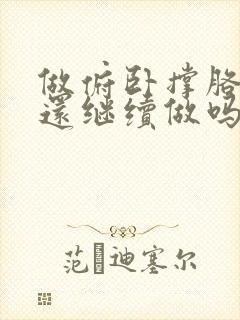 做俯卧撑胳
还继续做吗
范·迪塞尔